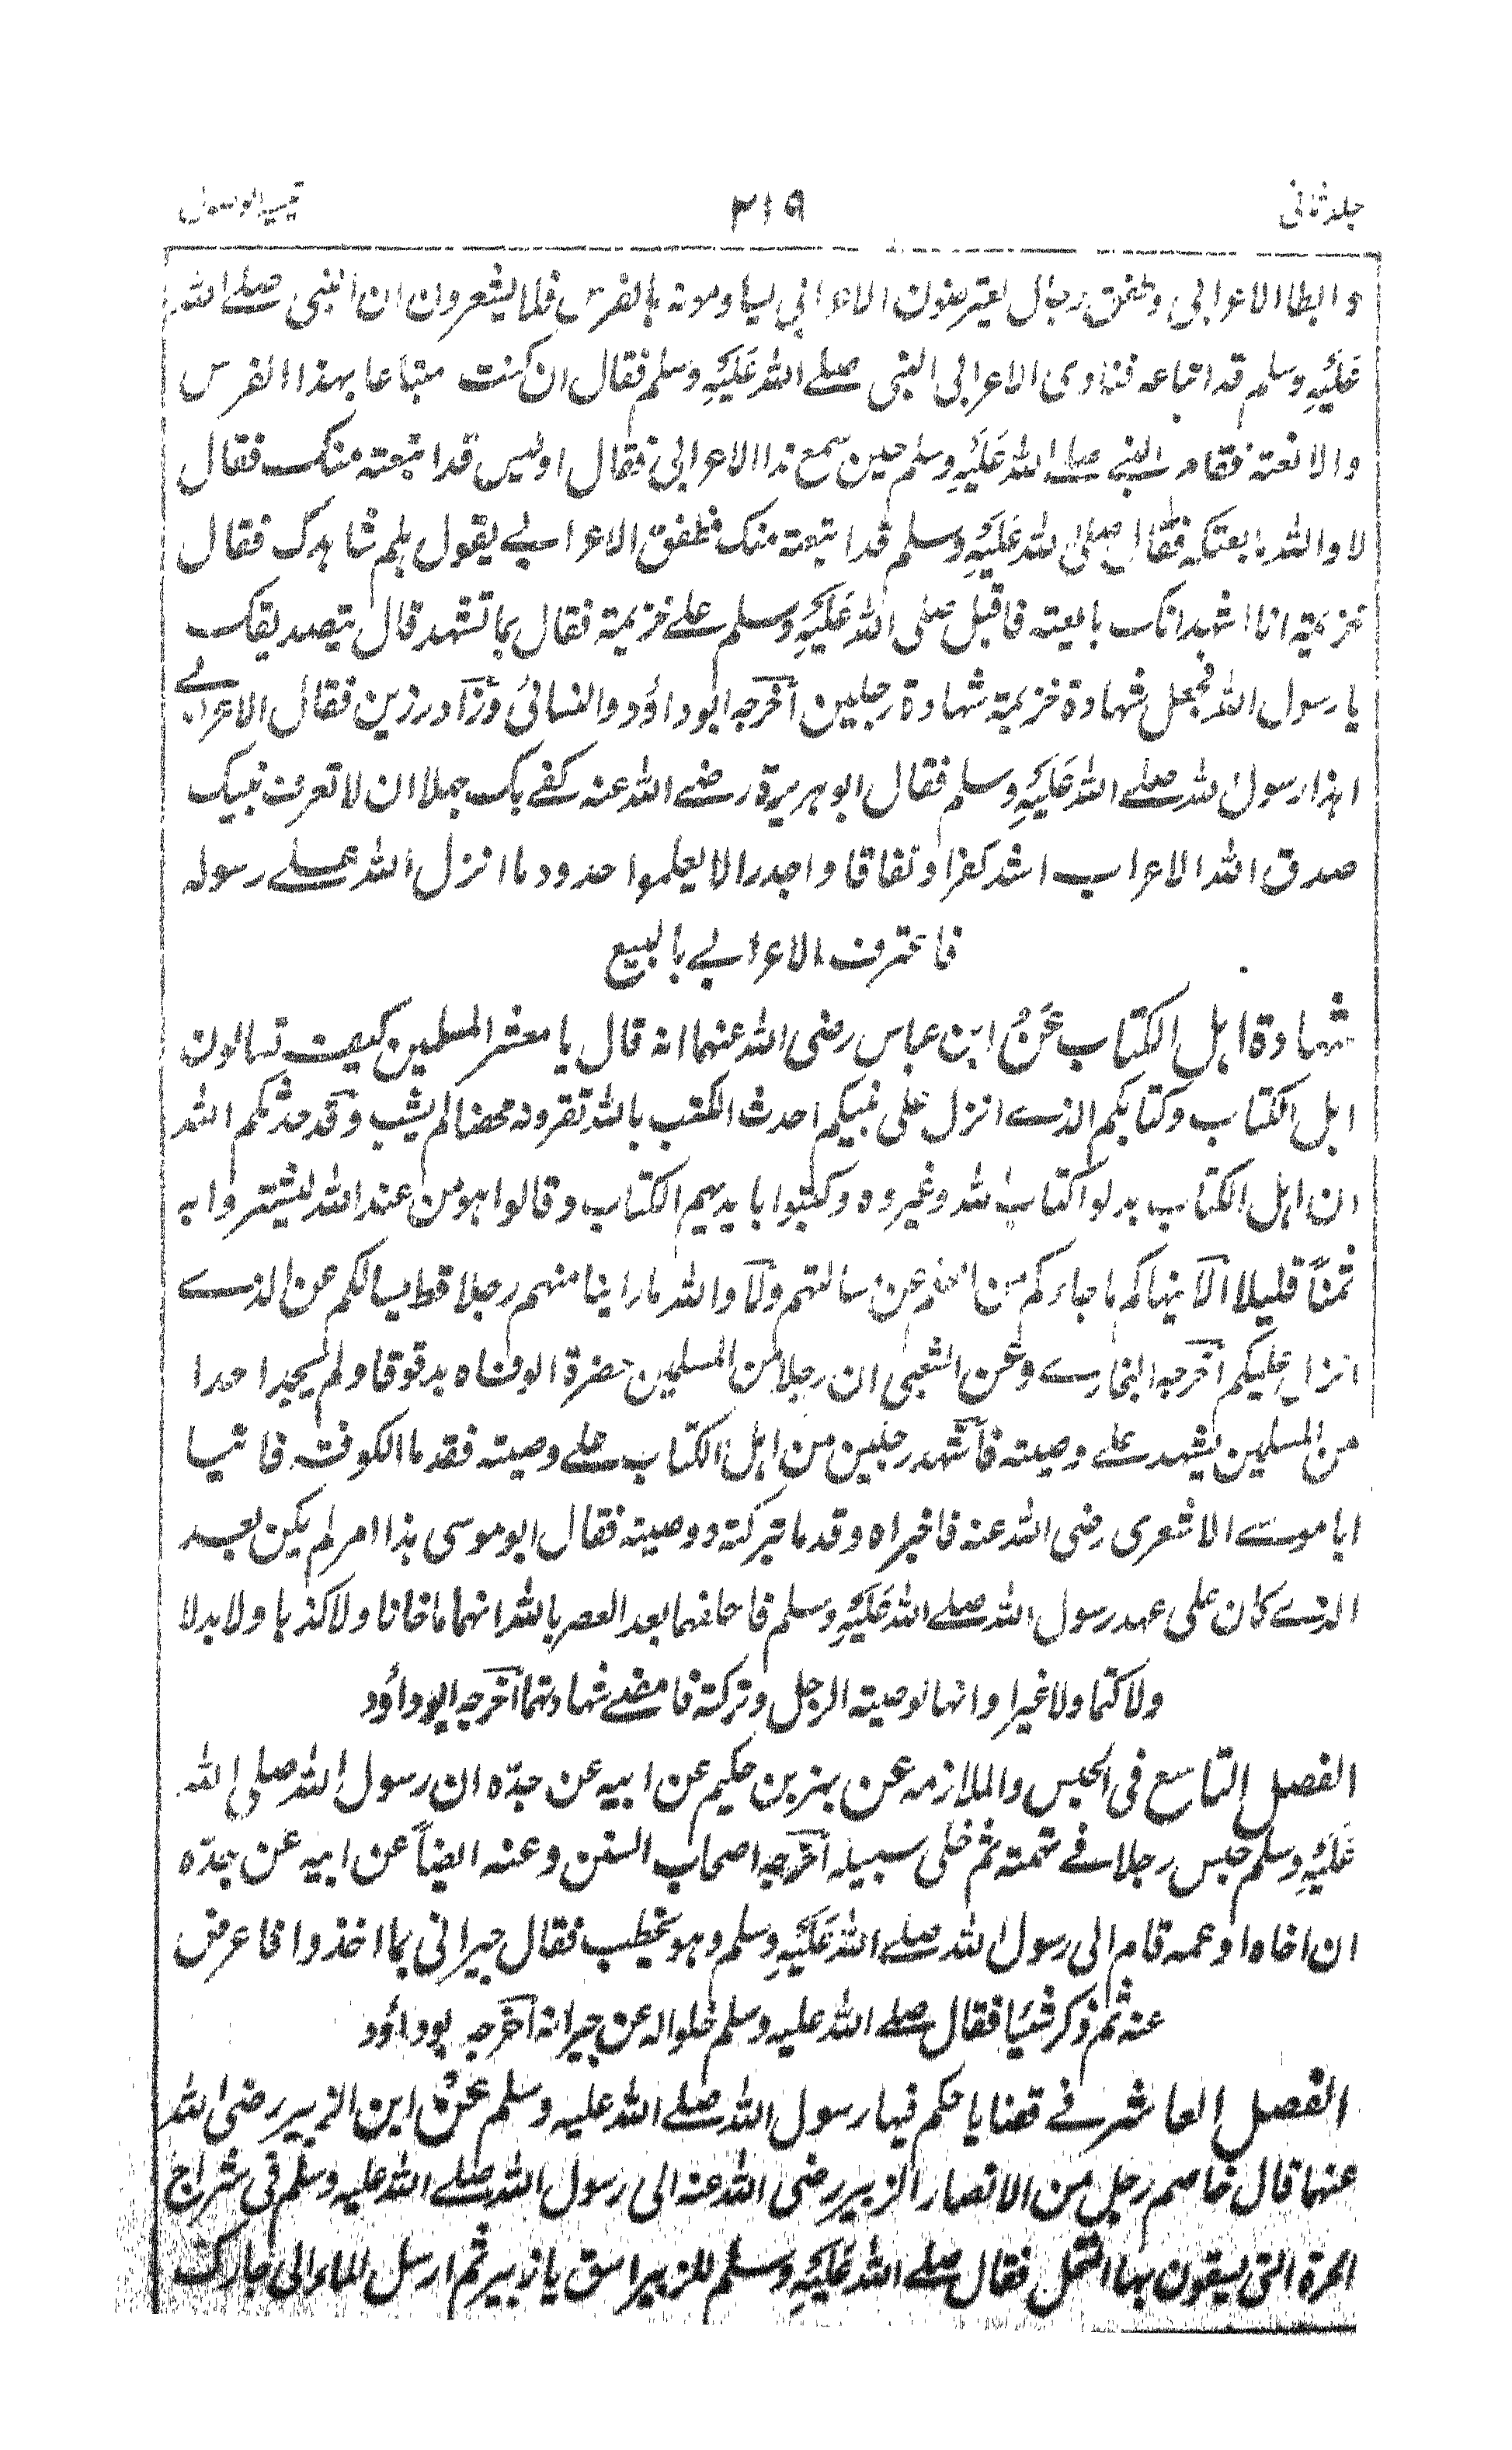 جلد ثانی ٢١٩ تیسیر الوصول
وابطا الاعرابی وطفق رجال یعترضون الاعرابی یساومونه بالفرس فلا یشعرون ان النبی صلے اللہ
عَلَیْہِ وسلم قد ابتاعه فنادی الاعرابی النبی صلے اللہ عَلَیْہِ وسلم فقال ان کنت مبتاعا بهذا الفرس
والا بعته فقام النبے صلے اللہ عَلَیْہِ وسلم حین سمع ندا الاعرابی فقال اولیس قد ابتعته منک فقال
لا واللہ ما بعتکه فقال صلی اللہ عَلَیْہِ وسلم قد ابتعته منک فطفق الاعرابے یقول ہلم شاہدک فقال
خزیمة انا اشهد انک بایعته فاقبل صلی اللہ عَلَیْہِ وسلم علے خزیمة فقال بما تشهد قال بتصدیقک
یا رسول اللہ فجعل شهادة خزیمة شهادة رجلین آخرجه ابو داؤد والنسائی وزآد رزین فقال الاعرابے
اہذا رسول اللہ صلے اللہ عَلَیْہِ وسلم فقال ابو ہریرة رضے اللہ عنه کفے بک جهلا ان لا تعرف نبیک
صدق اللہ الاعراب اشد کفرا ونفاقا واجدر الا یعلموا حدود ما انزل اللہ علے رسوله
فاعترف الاعرابے بالبیع
شهادة اہل الکتاب عَنْ ابن عباس رضی اللہ عنهما انه قال یا معشر المسلمین کیف تسالون
اہل الکتاب وکتابکم الذے انزل علی نبیکم احدث الکتب باللہ تقرونه محضا لم یشب وقد حدثکم اللہ
ان اہل الکتاب بدلوا کتاب اللہ وغیروه وکتبوا بایدیہم الکتاب وقالوا ہو من عند اللہ لیشتروا به
ثمناً قلیلا الآ ینهاکم ما جاءکم من العلم عن سالتهم ولآ واللہ ما راینا منهم رجلا قط یسالکم عن الذے
انزل علیکم آخرجه البخارے وعن الشعبی ان رجلا من المسلمین حضرة الوفاه بدقوقا ولم یجد احدا
من المسلمین یشهد علے وصیته فآشهد رجلین من اہل الکتاب علے وصیته فقدما الکوفة فاتیا
ابا موسے الاشعری رضی اللہ عنه فاخبراه وقدما بترکته ووصیته فقال ابو موسی ہذا امر لم یکن بعد
الذے کان علی عهد رسول اللہ صلے اللہ عَلَیْہِ وسلم فاحلفهما بعد العصر باللہ انهما ما خانا ولا کذبا ولا بدلا
ولا کتما ولا غیرا وانها لوصیته الرجل وترکته فامضے شهادتهما آخرجه ابو داؤد
الفصل التاسع فی الحبس والملازمه عن بهز بن حکیم عن ابیه عن جدّه ان رسول اللہ صلی اللہ
عَلَیْہِ وسلم حبس رجلا فے تهمته ثم خلی سبیله آخرجه اصحاب السنن وعنه ایضاً عن ابیه عن جدّه
ان اخاه او عمه قام الی رسول اللہ صلے اللہ عَلَیْہِ وسلم وہو یخطب فقال جیرانی بما اخذوا فاعرض
عنه ثم ذکر شیئا فقال صلے اللہ علیه وسلم خلوا له عن جیرانه آخرجه ابو داؤد
الفصل العاشر فے قضایا حکم فیها رسول اللہ صلے اللہ علیه وسلم عَنْ ابن الزبیر رضی اللہ
عنهما قال خاصم رجل من الانصار الزبیر رضی اللہ عنه الی رسول اللہ صلے اللہ علیه وسلم فی شراج
الحرة التی یسقون بها النخل فقال صلے اللہ عَلَیْہِ وسلم للزبیر اسق یا زبیر ثم ارسل الماء الی جارک